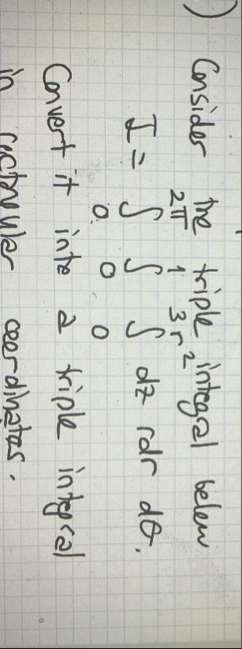 ) Consider the triple integral below
I = ∫₀^{2π} ∫₀^{1} ∫₀^{3r²} dz rdr dθ.
Convert it into a triple integral
in rectanuler coordinates.